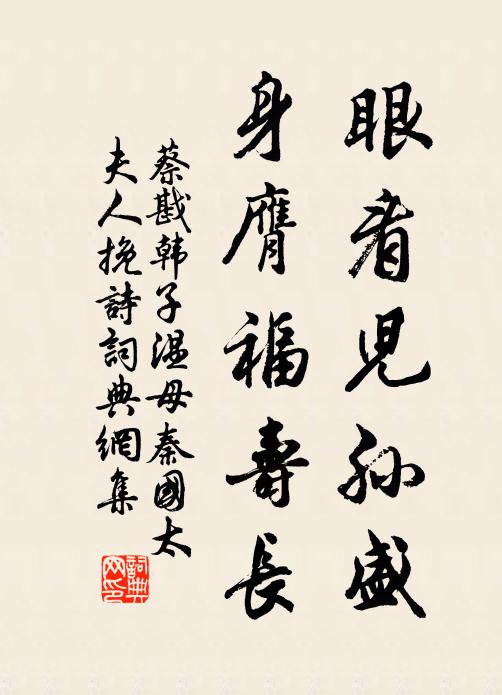 眼看児孙盛
身膺福壽長
蔡戡韩子温母秦國太
夫人挽詩詞典網集
詞典网